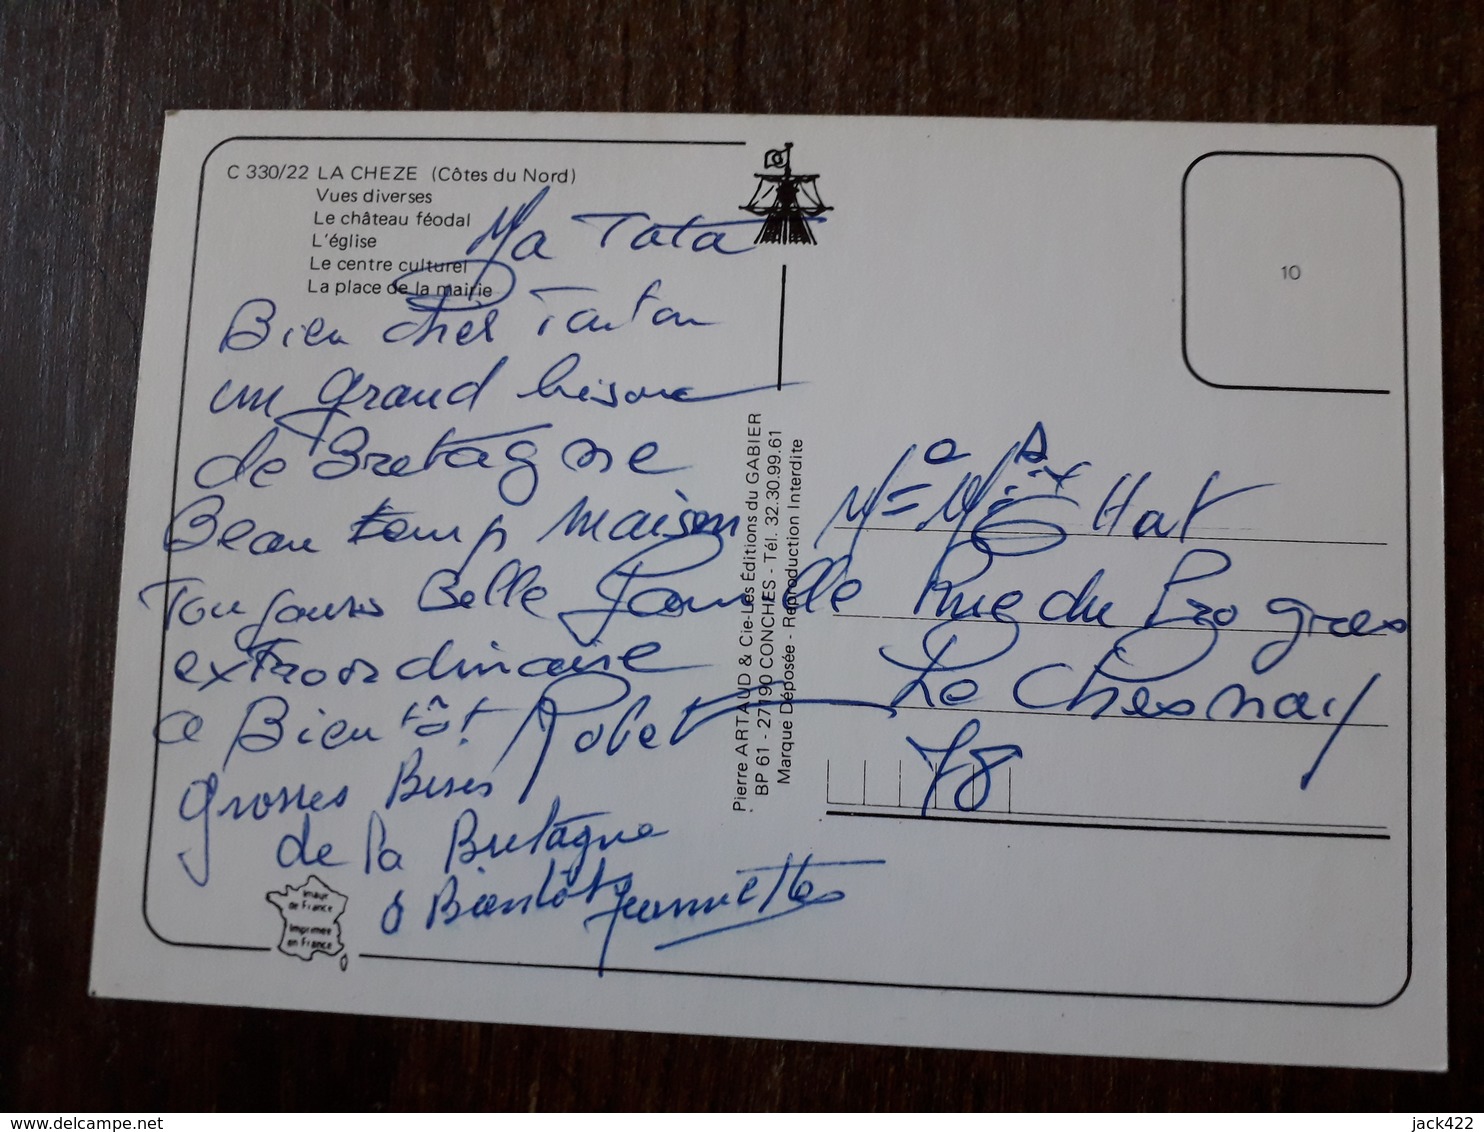 C 330/22 LA CHEZE (Côtes du Nord)
Vues diverses
Le château féodal
L'église
Le centre culturel
La place de la mairie
Ma Tata
Bien cher Tonton
un grand bisou
de Bretagne
Beau temp maison
Toujours Belle famille
extraordinaire
a Bientôt Robert
grosses Bises
de la Bretagne
à Bientôt Jeannette
Pierre ARTAUD & Cie-Les Éditions du GABIER
BP 61 - 27190 CONCHES - Tél. 32.30.99.61
Marque Déposée - Reproduction Interdite
10
Hat
Rue du Progres
Le Chesnay
78
Image
de France
Imprimée
en France
delcampe.net
jack422